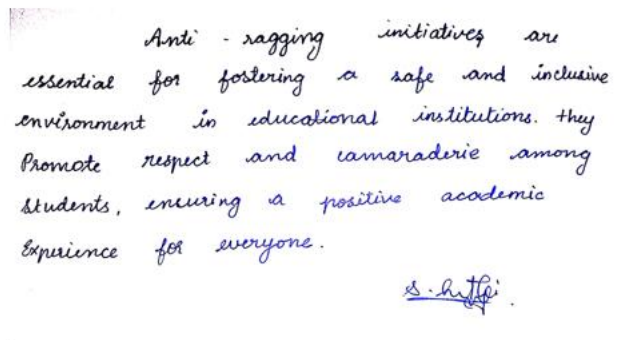 Anti - ragging initiatives are
essential for fostering a safe and inclusive
environment in educational institutions. they
Promote respect and camaraderie among
students, ensuring a positive academic
Experience for everyone.